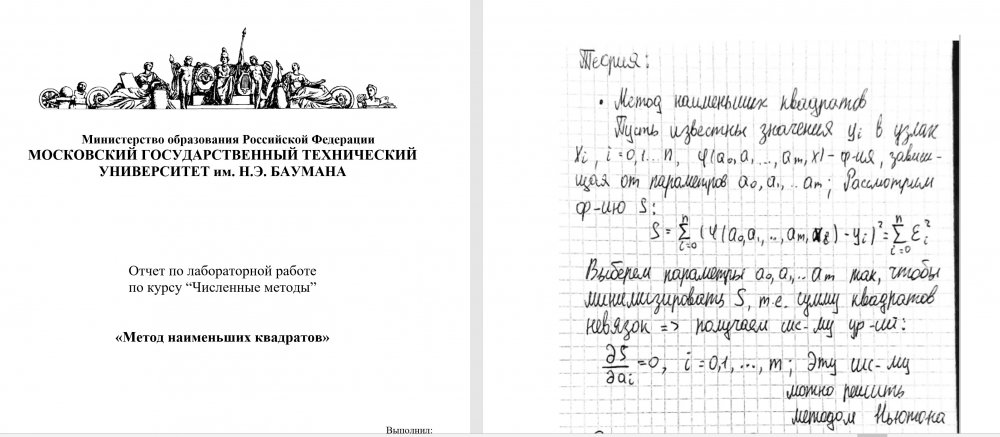 Министерство образования Российской Федерации
МОСКОВСКИЙ ГОСУДАРСТВЕННЫЙ ТЕХНИЧЕСКИЙ
УНИВЕРСИТЕТ им. Н.Э. БАУМАНА
Отчет по лабораторной работе
по курсу “Численные методы”
«Метод наименьших квадратов»
Выполнил:
Теория:
• Метод наименьших квадратов
Пусть известны значения yᵢ в узлах
xᵢ, i=0,1...n, φ(a₀,a₁,...,aₘ,x) - ф-ия, завися-
щая от параметров a₀,a₁,...aₘ; Рассмотрим
ф-ию S:
S = Σᵢ₌₀ⁿ (φ(a₀,a₁,...,aₘ,xᵢ) - yᵢ)² = Σᵢ₌₀ⁿ εᵢ²
Выберем параметры a₀,a₁,...aₘ так, чтобы
минимизировать S, т.е. сумму квадратов
невязок => получаем сис-му ур-ий:
∂S/∂aᵢ = 0, i=0,1,...,m; Эту сис-му
можно решить
методом Ньютона